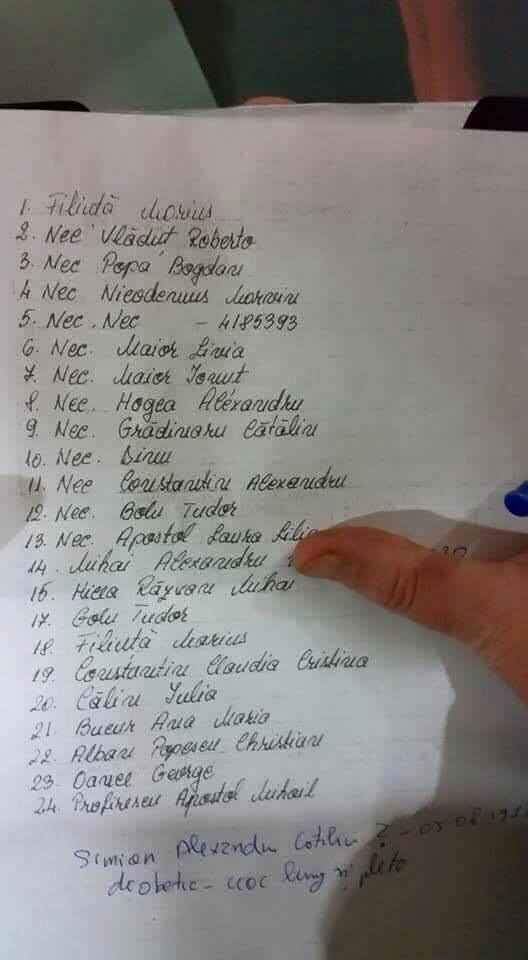 1. Filiută Marius
2. Nec Vlăduț Roberto
3. Nec Popa Bogdan
4 Nec Nicodemus Marvin
5. Nec. Nec - 4185393
6. Nec. Maior Livia
7. Nec. Maior Ionuț
8. Nec. Hogea Alexandru
9. Nec. Grădinaru Cătălin
10. Nec. Dinu
11. Nec Constantin Alexandru
12. Nec. Bolu Tudor
13. Nec. Apostol Laura
14. Mihai Alexandru
15. Răzvan Mihai
17. Golu Tudor
18. Filiută Marius
19. Constantin Claudia Cristina
20. Călin Iulia
21. Bucur Ana Maria
22. Alban Popescu Christian
23. Oance George
24. Profirescu Apostol Mihail
Simion Alexandru ? - 05 08
diabetic - lung și